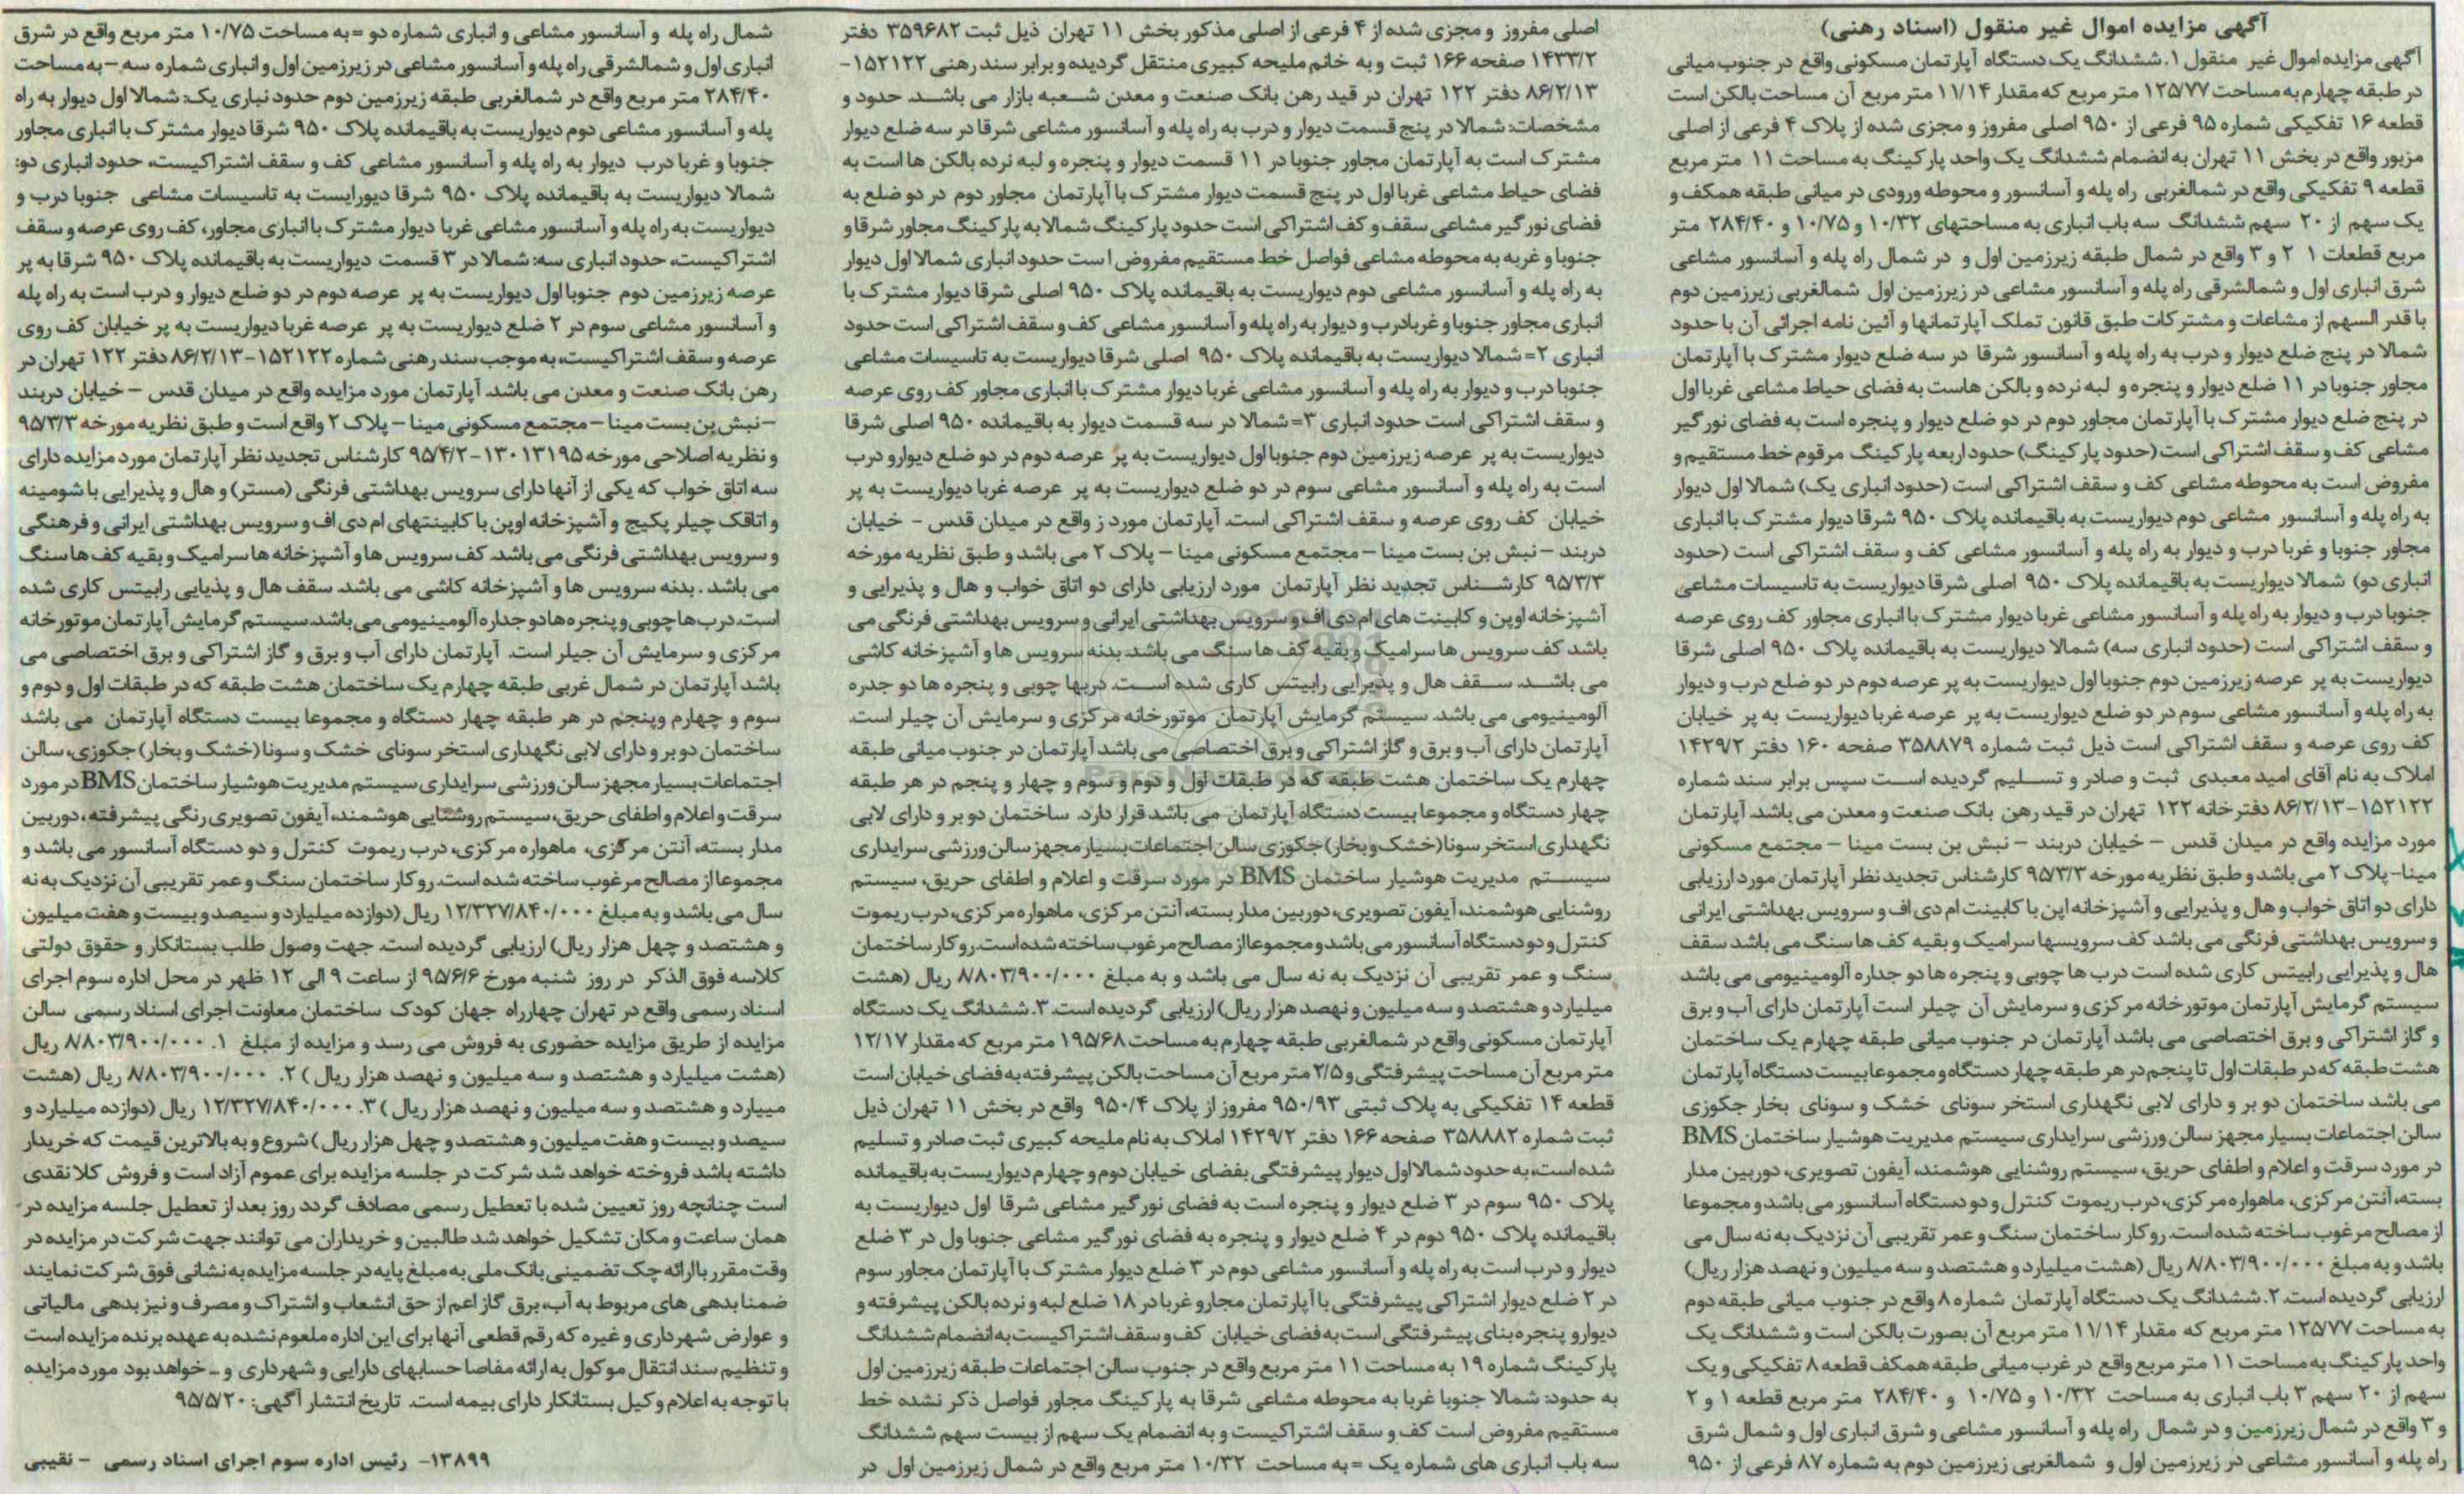 آگهی مزایده اموال غیر منقول (اسناد رهنی)
آگهی مزایده اموال غیر منقول ۱. ششدانگ یک دستگاه آپارتمان مسکونی واقع در جنوب میانی
در طبقه چهارم به مساحت ۱۲۵/۷۷ متر مربع که مقدار ۱۱/۱۴ متر مربع آن مساحت بالکن است
قطعه ۱۶ تفکیکی شماره ۹۵ فرعی از ۹۵۰ اصلی مفروز و مجزی شده از پلاک ۴ فرعی از اصلی
مزبور واقع در بخش ۱۱ تهران به انضمام ششدانگ یک واحد پارکینگ به مساحت ۱۱ متر مربع
قطعه ۹ تفکیکی واقع در شمالغربی راه پله و آسانسور و محوطه ورودی در میانی طبقه همکف و
یک سهم از ۲۰ سهم ششدانگ سه باب انباری به مساحتهای ۱۰/۳۲ و ۱۰/۷۵ و ۲۸۴/۴۰ متر
مربع قطعات ۱ ۲ و ۳ واقع در شمال طبقه زیرزمین اول و در شمال راه پله و آسانسور مشاعی
شرق انباری اول و شمالشرقی راه پله و آسانسور مشاعی در زیرزمین اول شمالغربی زیرزمین دوم
با قدر السهم از مشاعات و مشترکات طبق قانون تملک آپارتمانها و آئین نامه اجرائی آن با حدود
شمالا در پنج ضلع دیوار و درب به راه پله و آسانسور شرقا در سه ضلع دیوار مشترک با آپارتمان
مجاور جنوبا در ۱۱ ضلع دیوار و پنجره و لبه نرده و بالکن هاست به فضای حیاط مشاعی غربا اول
در پنج ضلع دیوار مشترک با آپارتمان مجاور دوم در دو ضلع دیوار و پنجره است به فضای نورگیر
مشاعی کف و سقف اشتراکی است (حدود پارکینگ) حدود اربعه پارکینگ مرقوم خط مستقیم و
مفروض است به محوطه مشاعی کف و سقف اشتراکی است (حدود انباری یک) شمالا اول دیوار
به راه پله و آسانسور مشاعی دوم دیواریست به باقیمانده پلاک ۹۵۰ شرقا دیوار مشترک با انباری
مجاور جنوبا و غربا درب و دیوار به راه پله و آسانسور مشاعی کف و سقف اشتراکی است (حدود
انباری دو) شمالا دیواریست به باقیمانده پلاک ۹۵۰ اصلی شرقا دیواریست به تاسیسات مشاعی
جنوبا درب و دیوار به راه پله و آسانسور مشاعی غربا دیوار مشترک با انباری مجاور کف روی عرصه
و سقف اشتراکی است (حدود انباری سه) شمالا دیواریست به باقیمانده پلاک ۹۵۰ اصلی شرقا
دیواریست به پر عرصه زیرزمین دوم جنوبا اول دیواریست به پر عرصه دوم در دو ضلع درب و دیوار
به راه پله و آسانسور مشاعی سوم در دو ضلع دیواریست به پر عرصه غربا دیواریست به پر خیابان
کف روی عرصه و سقف اشتراکی است ذیل ثبت شماره ۳۵۸۸۷۹ صفحه ۱۶۰ دفتر ۱۴۲۹/۲
املاک به نام آقای امید معبدی ثبت و صادر و تسلیم گردیده است سپس برابر سند شماره
۱۵۲۱۲۲-۸۶/۲/۱۳ دفترخانه ۱۲۲ تهران در قید رهن بانک صنعت و معدن می باشد. آپارتمان
مورد مزایده واقع در میدان قدس – خیابان دربند – نبش بن بست مینا – مجتمع مسکونی
مینا-پلاک ۲ می باشد و طبق نظریه مورخه ۹۵/۳/۳ کارشناس تجدید نظر آپارتمان مورد ارزیابی
دارای دو اتاق خواب و هال و پذیرایی و آشپزخانه اپن با کابینت ام دی اف و سرویس بهداشتی ایرانی
و سرویس بهداشتی فرنگی می باشد کف سرویسها سرامیک و بقیه کف ها سنگ می باشد سقف
هال و پذیرایی رابیتس کاری شده است درب ها چوبی و پنجره ها دو جداره آلومینیومی می باشد
سیستم گرمایش آپارتمان موتورخانه مرکزی و سرمایش آن چیلر است آپارتمان دارای آب و برق
و گاز اشتراکی و برق اختصاصی می باشد آپارتمان در جنوب میانی طبقه چهارم یک ساختمان
هشت طبقه که در طبقات اول تا پنجم در هر طبقه چهار دستگاه و مجموعا بیست دستگاه آپارتمان
می باشد ساختمان دو بر و دارای لابی نگهداری استخر سونای خشک و سونای بخار جکوزی
سالن اجتماعات بسیار مجهز سالن ورزشی سرایداری سیستم مدیریت هوشیار ساختمان BMS
در مورد سرقت و اعلام و اطفای حریق، سیستم روشنایی هوشمند، آیفون تصویری، دوربین مدار
بسته، آنتن مرکزی، ماهواره مرکزی، درب ریموت کنترل و دو دستگاه آسانسور می باشد و مجموعا
از مصالح مرغوب ساخته شده است. روکار ساختمان سنگ و عمر تقریبی آن نزدیک به نه سال می
باشد و به مبلغ ۸/۸۰۳/۹۰۰/۰۰۰ ریال (هشت میلیارد و هشتصد و سه میلیون و نهصد هزار ریال)
ارزیابی گردیده است. ۲. ششدانگ یک دستگاه آپارتمان شماره ۸ واقع در جنوب میانی طبقه دوم
به مساحت ۱۲۵/۷۷ متر مربع که مقدار ۱۱/۱۴ متر مربع آن بصورت بالکن است و ششدانگ یک
واحد پارکینگ به مساحت ۱۱ متر مربع واقع در غرب میانی طبقه همکف قطعه ۸ تفکیکی و یک
سهم از ۲۰ سهم ۳ باب انباری به مساحت ۱۰/۳۲ و ۱۰/۷۵ و ۲۸۴/۴۰ متر مربع قطعه ۱ و ۲
و ۳ واقع در شمال زیرزمین و در شمال راه پله و آسانسور مشاعی و شرق انباری اول و شمال شرق
راه پله و آسانسور مشاعی در زیرزمین اول و شمالغربی زیرزمین دوم به شماره ۸۷ فرعی از ۹۵۰
اصلی مفروز و مجزی شده از ۴ فرعی از اصلی مذکور بخش ۱۱ تهران ذیل ثبت ۳۵۹۶۸۲ دفتر
۱۴۳۳/۲ صفحه ۱۶۶ ثبت و به خانم ملیحه کبیری منتقل گردیده و برابر سند رهنی ۱۵۲۱۲۲-
۸۶/۲/۱۳ دفتر ۱۲۲ تهران در قید رهن بانک صنعت و معدن شعبه بازار می باشد. حدود و
مشخصات: شمالا در پنج قسمت دیوار و درب به راه پله و آسانسور مشاعی شرقا در سه ضلع دیوار
مشترک است به آپارتمان مجاور جنوبا در ۱۱ قسمت دیوار و پنجره و لبه نرده بالکن ها است به
فضای حیاط مشاعی غربا اول در پنج قسمت دیوار مشترک با آپارتمان مجاور دوم در دو ضلع به
فضای نورگیر مشاعی سقف و کف اشتراکی است حدود پارکینگ شمالا به پارکینگ مجاور شرقا و
جنوبا و غربه به محوطه مشاعی فواصل خط مستقیم مفروض است حدود انباری شمالا اول دیوار
به راه پله و آسانسور مشاعی دوم دیواریست به باقیمانده پلاک ۹۵۰ اصلی شرقا دیوار مشترک با
انباری مجاور جنوبا و غربادرب و دیوار به راه پله و آسانسور مشاعی کف و سقف اشتراکی است حدود
انباری ۲= شمالا دیواریست به باقیمانده پلاک ۹۵۰ اصلی شرقا دیواریست به تاسیسات مشاعی
جنوبا درب و دیوار به راه پله و آسانسور مشاعی غربا دیوار مشترک با انباری مجاور کف روی عرصه
و سقف اشتراکی است حدود انباری ۳= شمالا در سه قسمت دیوار به باقیمانده ۹۵۰ اصلی شرقا
دیواریست به پر عرصه زیرزمین دوم جنوبا اول دیواریست به پر عرصه دوم در دو ضلع دیوارو درب
است به راه پله و آسانسور مشاعی سوم در دو ضلع دیواریست به پر عرصه غربا دیواریست به پر
خیابان کف روی عرصه و سقف اشتراکی است. آپارتمان مورد ز واقع در میدان قدس - خیابان
دربند – نبش بن بست مینا – مجتمع مسکونی مینا – پلاک ۲ می باشد و طبق نظریه مورخه
۹۵/۳/۳ کارشناس تجدید نظر آپارتمان مورد ارزیابی دارای دو اتاق خواب و هال و پذیرایی و
آشپزخانه اوپن و کابینت های ام دی اف و سرویس بهداشتی ایرانی و سرویس بهداشتی فرنگی می
باشد کف سرویس ها سرامیک و بقیه کف ها سنگ می باشد. بدنه سرویس ها و آشپزخانه کاشی
می باشد. سقف هال و پذیرایی رابیتس کاری شده است. دربها چوبی و پنجره ها دو جدره
آلومینیومی می باشد. سیستم گرمایش آپارتمان موتورخانه مرکزی و سرمایش آن چیلر است.
آپارتمان دارای آب و برق و گاز اشتراکی و برق اختصاصی می باشد آپارتمان در جنوب میانی طبقه
چهارم یک ساختمان هشت طبقه که در طبقات اول و دوم و سوم و چهار و پنجم در هر طبقه
چهار دستگاه و مجموعا بیست دستگاه آپارتمان می باشد قرار دارد. ساختمان دو بر و دارای لابی
نگهداری استخر سونا (خشک و بخار) جکوزی سالن اجتماعات بسیار مجهز سالن ورزشی سرایداری
سیستم مدیریت هوشیار ساختمان BMS در مورد سرقت و اعلام و اطفای حریق، سیستم
روشنایی هوشمند، آیفون تصویری، دوربین مدار بسته، آنتن مرکزی، ماهواره مرکزی، درب ریموت
کنترل و دو دستگاه آسانسور می باشد و مجموعا از مصالح مرغوب ساخته شده است. روکار ساختمان
سنگ و عمر تقریبی آن نزدیک به نه سال می باشد و به مبلغ ۸/۸۰۳/۹۰۰/۰۰۰ ریال (هشت
میلیارد و هشتصد و سه میلیون و نهصد هزار ریال) ارزیابی گردیده است. ۳. ششدانگ یک دستگاه
آپارتمان مسکونی واقع در شمالغربی طبقه چهارم به مساحت ۱۹۵/۶۸ متر مربع که مقدار ۱۲/۱۷
متر مربع آن مساحت پیشرفتگی و ۲/۵ متر مربع آن مساحت بالکن پیشرفته به فضای خیابان است
قطعه ۱۴ تفکیکی به پلاک ثبتی ۹۵۰/۹۳ مفروز از پلاک ۹۵۰/۴ واقع در بخش ۱۱ تهران ذیل
ثبت شماره ۳۵۸۸۸۲ صفحه ۱۶۶ دفتر ۱۴۲۹/۲ املاک به نام ملیحه کبیری ثبت صادر و تسلیم
شده است، به حدود شمالا اول دیوار پیشرفتگی بفضای خیابان دوم و چهارم دیواریست به باقیمانده
پلاک ۹۵۰ سوم در ۳ ضلع دیوار و پنجره است به فضای نورگیر مشاعی شرقا اول دیواریست به
باقیمانده پلاک ۹۵۰ دوم در ۴ ضلع دیوار و پنجره به فضای نورگیر مشاعی جنوبا ول در ۳ ضلع
دیوار و درب است به راه پله و آسانسور مشاعی دوم در ۳ ضلع دیوار مشترک با آپارتمان مجاور سوم
در ۲ ضلع دیوار اشتراکی پیشرفتگی با آپارتمان مجارو غربا در ۱۸ ضلع لبه و نرده بالکن پیشرفته و
دیوارو پنجره بنای پیشرفتگی است به فضای خیابان کف و سقف اشتراکیست به انضمام ششدانگ
پارکینگ شماره ۱۹ به مساحت ۱۱ متر مربع واقع در جنوب سالن اجتماعات طبقه زیرزمین اول
به حدود: شمالا جنوبا غربا به محوطه مشاعی شرقا به پارکینگ مجاور فواصل ذکر نشده خط
مستقیم مفروض است کف و سقف اشتراکیست و به انضمام یک سهم از بیست سهم ششدانگ
سه باب انباری های شماره یک = به مساحت ۱۰/۳۲ متر مربع واقع در شمال زیرزمین اول در
شمال راه پله و آسانسور مشاعی و انباری شماره دو = به مساحت ۱۰/۷۵ متر مربع واقع در شرق
انباری اول و شمالشرقی راه پله و آسانسور مشاعی در زیرزمین اول و انباری شماره سه – به مساحت
۲۸۴/۴۰ متر مربع واقع در شمالغربی طبقه زیرزمین دوم حدود نباری یک: شمالا اول دیوار به راه
پله و آسانسور مشاعی دوم دیواریست به باقیمانده پلاک ۹۵۰ شرقا دیوار مشترک با انباری مجاور
جنوبا و غربا درب دیوار به راه پله و آسانسور مشاعی کف و سقف اشتراکیست، حدود انباری دو:
شمالا دیواریست به باقیمانده پلاک ۹۵۰ شرقا دیورایست به تاسیسات مشاعی جنوبا درب و
دیواریست به راه پله و آسانسور مشاعی غربا دیوار مشترک با انباری مجاور، کف روی عرصه و سقف
اشتراکیست، حدود انباری سه: شمالا در ۳ قسمت دیواریست به باقیمانده پلاک ۹۵۰ شرقا به پر
عرصه زیرزمین دوم جنوبا اول دیواریست به پر عرصه دوم در دو ضلع دیوار و درب است به راه پله
و آسانسور مشاعی سوم در ۲ ضلع دیواریست به پر عرصه غربا دیواریست به پر خیابان کف روی
عرصه و سقف اشتراکیست، به موجب سند رهنی شماره ۱۵۲۱۲۲-۸۶/۲/۱۳ دفتر ۱۲۲ تهران در
رهن بانک صنعت و معدن می باشد. آپارتمان مورد مزایده واقع در میدان قدس – خیابان دربند
–نبش بن بست مینا – مجتمع مسکونی مینا – پلاک ۲ واقع است و طبق نظریه مورخه ۹۵/۳/۳
و نظریه اصلاحی مورخه ۱۳۰۱۳۱۹۵-۹۵/۴/۲ کارشناس تجدید نظر آپارتمان مورد مزایده دارای
سه اتاق خواب که یکی از آنها دارای سرویس بهداشتی فرنگی (مستر) و هال و پذیرایی با شومینه
و اتاقک چیلر پکیج و آشپزخانه اوپن با کابینتهای ام دی اف و سرویس بهداشتی ایرانی و فرهنگی
و سرویس بهداشتی فرنگی می باشد. کف سرویس ها و آشپزخانه ها سرامیک و بقیه کف ها سنگ
می باشد . بدنه سرویس ها و آشپزخانه کاشی می باشد. سقف هال و پذیایی رابیتس کاری شده
است. درب ها چوبی و پنجره ها دو جداره آلومینیومی می باشد. سیستم گرمایش آپارتمان موتورخانه
مرکزی و سرمایش آن جیلر است. آپارتمان دارای آب و برق و گاز اشتراکی و برق اختصاصی می
باشد آپارتمان در شمال غربی طبقه چهارم یک ساختمان هشت طبقه که در طبقات اول و دوم و
سوم و چهارم وپنجم در هر طبقه چهار دستگاه و مجموعا بیست دستگاه آپارتمان می باشد
ساختمان دو بر و دارای لابی نگهداری استخر سونای خشک و سونا (خشک و بخار) جکوزی، سالن
اجتماعات بسیار مجهز سالن ورزشی سرایداری سیستم مدیریت هوشیار ساختمان BMS در مورد
سرقت و اعلام و اطفای حریق، سیستم روشنایی هوشمند، آیفون تصویری رنگی پیشرفته، دوربین
مدار بسته، آنتن مرکزی، ماهواره مرکزی، درب ریموت کنترل و دو دستگاه آسانسور می باشد و
مجموعا از مصالح مرغوب ساخته شده است. روکار ساختمان سنگ و عمر تقریبی آن نزدیک به نه
سال می باشد و به مبلغ ۱۲/۳۲۷/۸۴۰/۰۰۰ ریال (دوازده میلیارد و سیصد و بیست و هفت میلیون
و هشتصد و چهل هزار ریال) ارزیابی گردیده است. جهت وصول طلب بستانکار و حقوق دولتی
کلاسه فوق الذکر در روز شنبه مورخ ۹۵/۶/۶ از ساعت ۹ الی ۱۲ ظهر در محل اداره سوم اجرای
اسناد رسمی واقع در تهران چهارراه جهان کودک ساختمان معاونت اجرای اسناد رسمی سالن
مزایده از طریق مزایده حضوری به فروش می رسد و مزایده از مبلغ ۱. ۸/۸۰۳/۹۰۰/۰۰۰ ریال
(هشت میلیارد و هشتصد و سه میلیون و نهصد هزار ریال ) ۲. ۸/۸۰۳/۹۰۰/۰۰۰ ریال (هشت
میبیارد و هشتصد و سه میلیون و نهصد هزار ریال ) ۳. ۱۲/۳۲۷/۸۴۰/۰۰۰ ریال (دوازده میلیارد و
سیصد و بیست و هفت میلیون و هشتصد و چهل هزار ریال) شروع و به بالاترین قیمت که خریدار
داشته باشد فروخته خواهد شد شرکت در جلسه مزایده برای عموم آزاد است و فروش کلا نقدی
است چنانچه روز تعیین شده با تعطیل رسمی مصادف گردد روز بعد از تعطیل جلسه مزایده در
همان ساعت و مکان تشکیل خواهد شد طالبین و خریداران می توانند جهت شرکت در مزایده در
وقت مقرر باارائه چک تضمینی بانک ملی به مبلغ پایه در جلسه مزایده به نشانی فوق شرکت نمایند
ضمنا بدهی های مربوط به آب، برق گاز اعم از حق انشعاب و اشتراک و مصرف و نیز بدهی مالیاتی
و عوارض شهرداری و غیره که رقم قطعی آنها برای این اداره ملعوم نشده به عهده برنده مزایده است
و تنظیم سند انتقال موکول به ارائه مفاصا حسابهای دارایی و شهرداری و ... خواهد بود مورد مزایده
با توجه به اعلام وکیل بستانکار دارای بیمه است. تاریخ انتشار آگهی: ۹۵/۵/۲۰
۱۳۸۹۹- رئیس اداره سوم اجرای اسناد رسمی - نقیبی